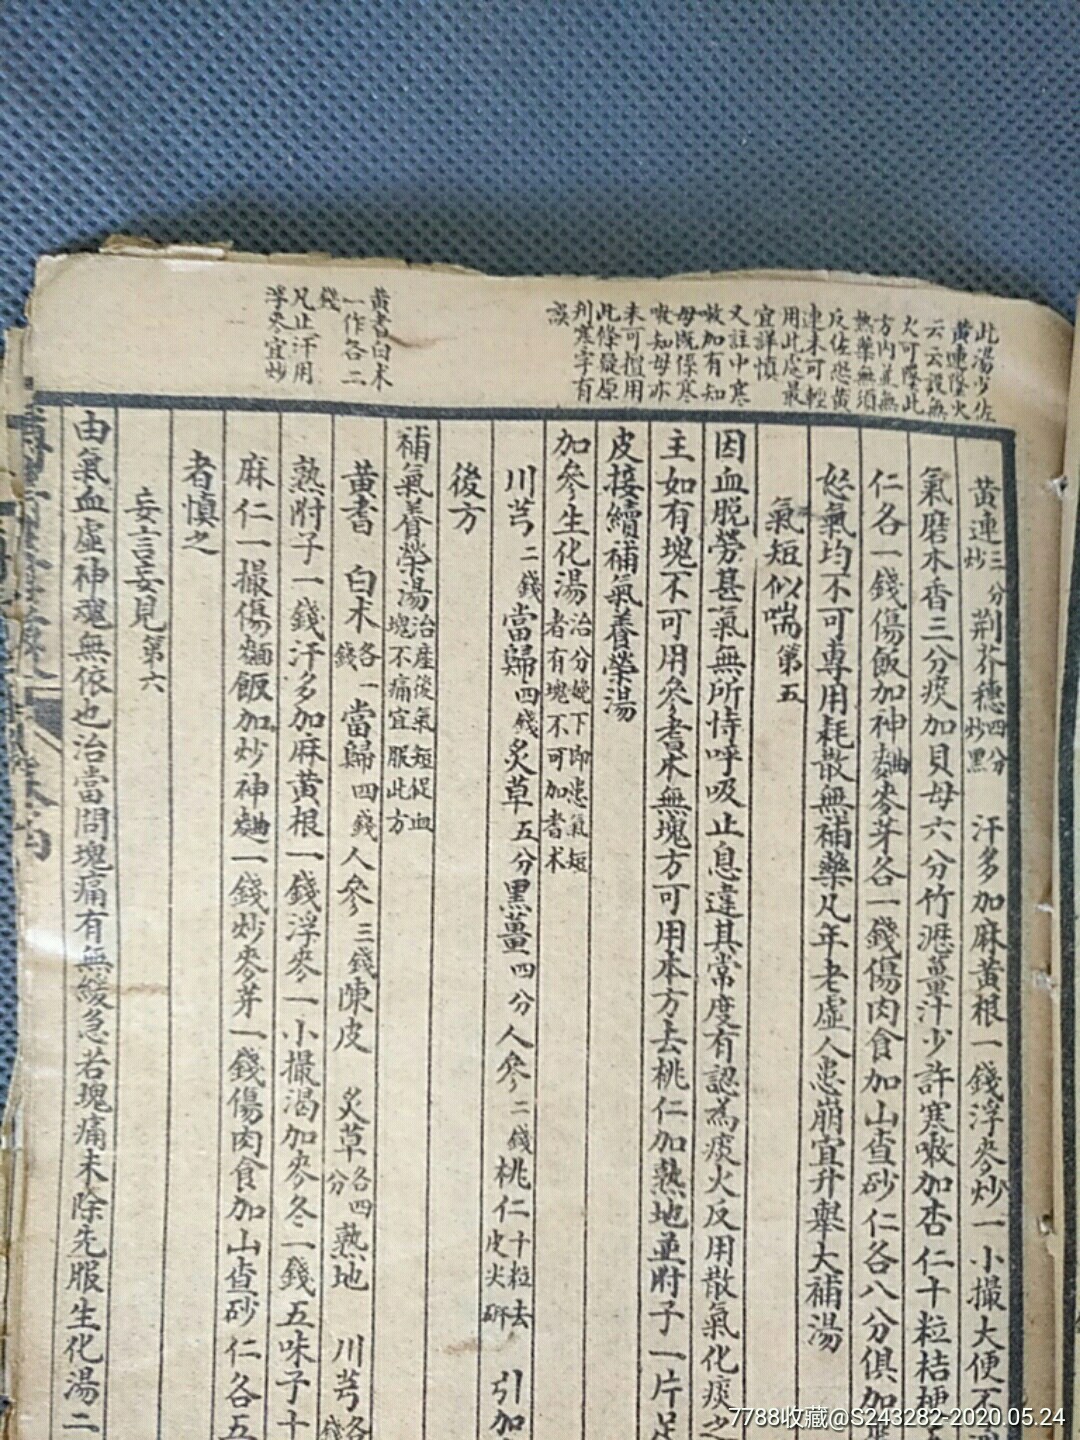 此湯少佐
黃連降火
云云設無
火可降此
方內並無
熱藥無須
反佐恐黃
連未可輕
用此處最
宜詳慎
又註中寒
嗽加有知
母既係寒
嗽知母亦
未可擅用
此條疑原
刊寒字有
誤
黃耆白朮
一作各二
錢
凡止汗用
浮麥宜炒
黃連三分炒荆芥穗四分炒黑 汗多加麻黃根一錢浮麥炒一小撮大便不
氣磨木香三分痰加貝母六分竹瀝薑汁少許寒嗽加杏仁十粒桔梗
仁各一錢傷飯加神麯麥芽各一錢傷肉食加山查砂仁各八分俱加
忿氣均不可專用耗散無補藥凡年老虛人患崩宜升舉大補湯
氣短似喘第五
因血脫勞甚氣無所恃呼吸止息違其常度有認為痰火反用散氣化痰之
主如有塊不可用參耆朮無塊方可用本方去桃仁加熟地並附子一片足
皮接續補氣養榮湯
加參生化湯治分娩下即患氣短者有塊不可加耆朮
川芎二錢當歸四錢炙草五分黑薑四分人參二錢桃仁十粒去皮尖研 引加
後方
補氣養榮湯治產後氣短促血塊不痛宜服此方
黃耆 白朮各一錢當歸四錢人參三錢陳皮 炙草各四分熟地 川芎各
熟附子一錢汗多加麻黃根一錢浮麥一小撮渴加麥冬一錢五味子十
麻仁一撮傷麵飯加炒神麯一錢炒麥芽一錢傷肉食加山查砂仁各五
者慎之
妄言妄見第六
由氣血虛神魂無依也治當問塊痛有無緩急若塊痛未除先服生化湯二
7788收藏@S243282-2020.05.24